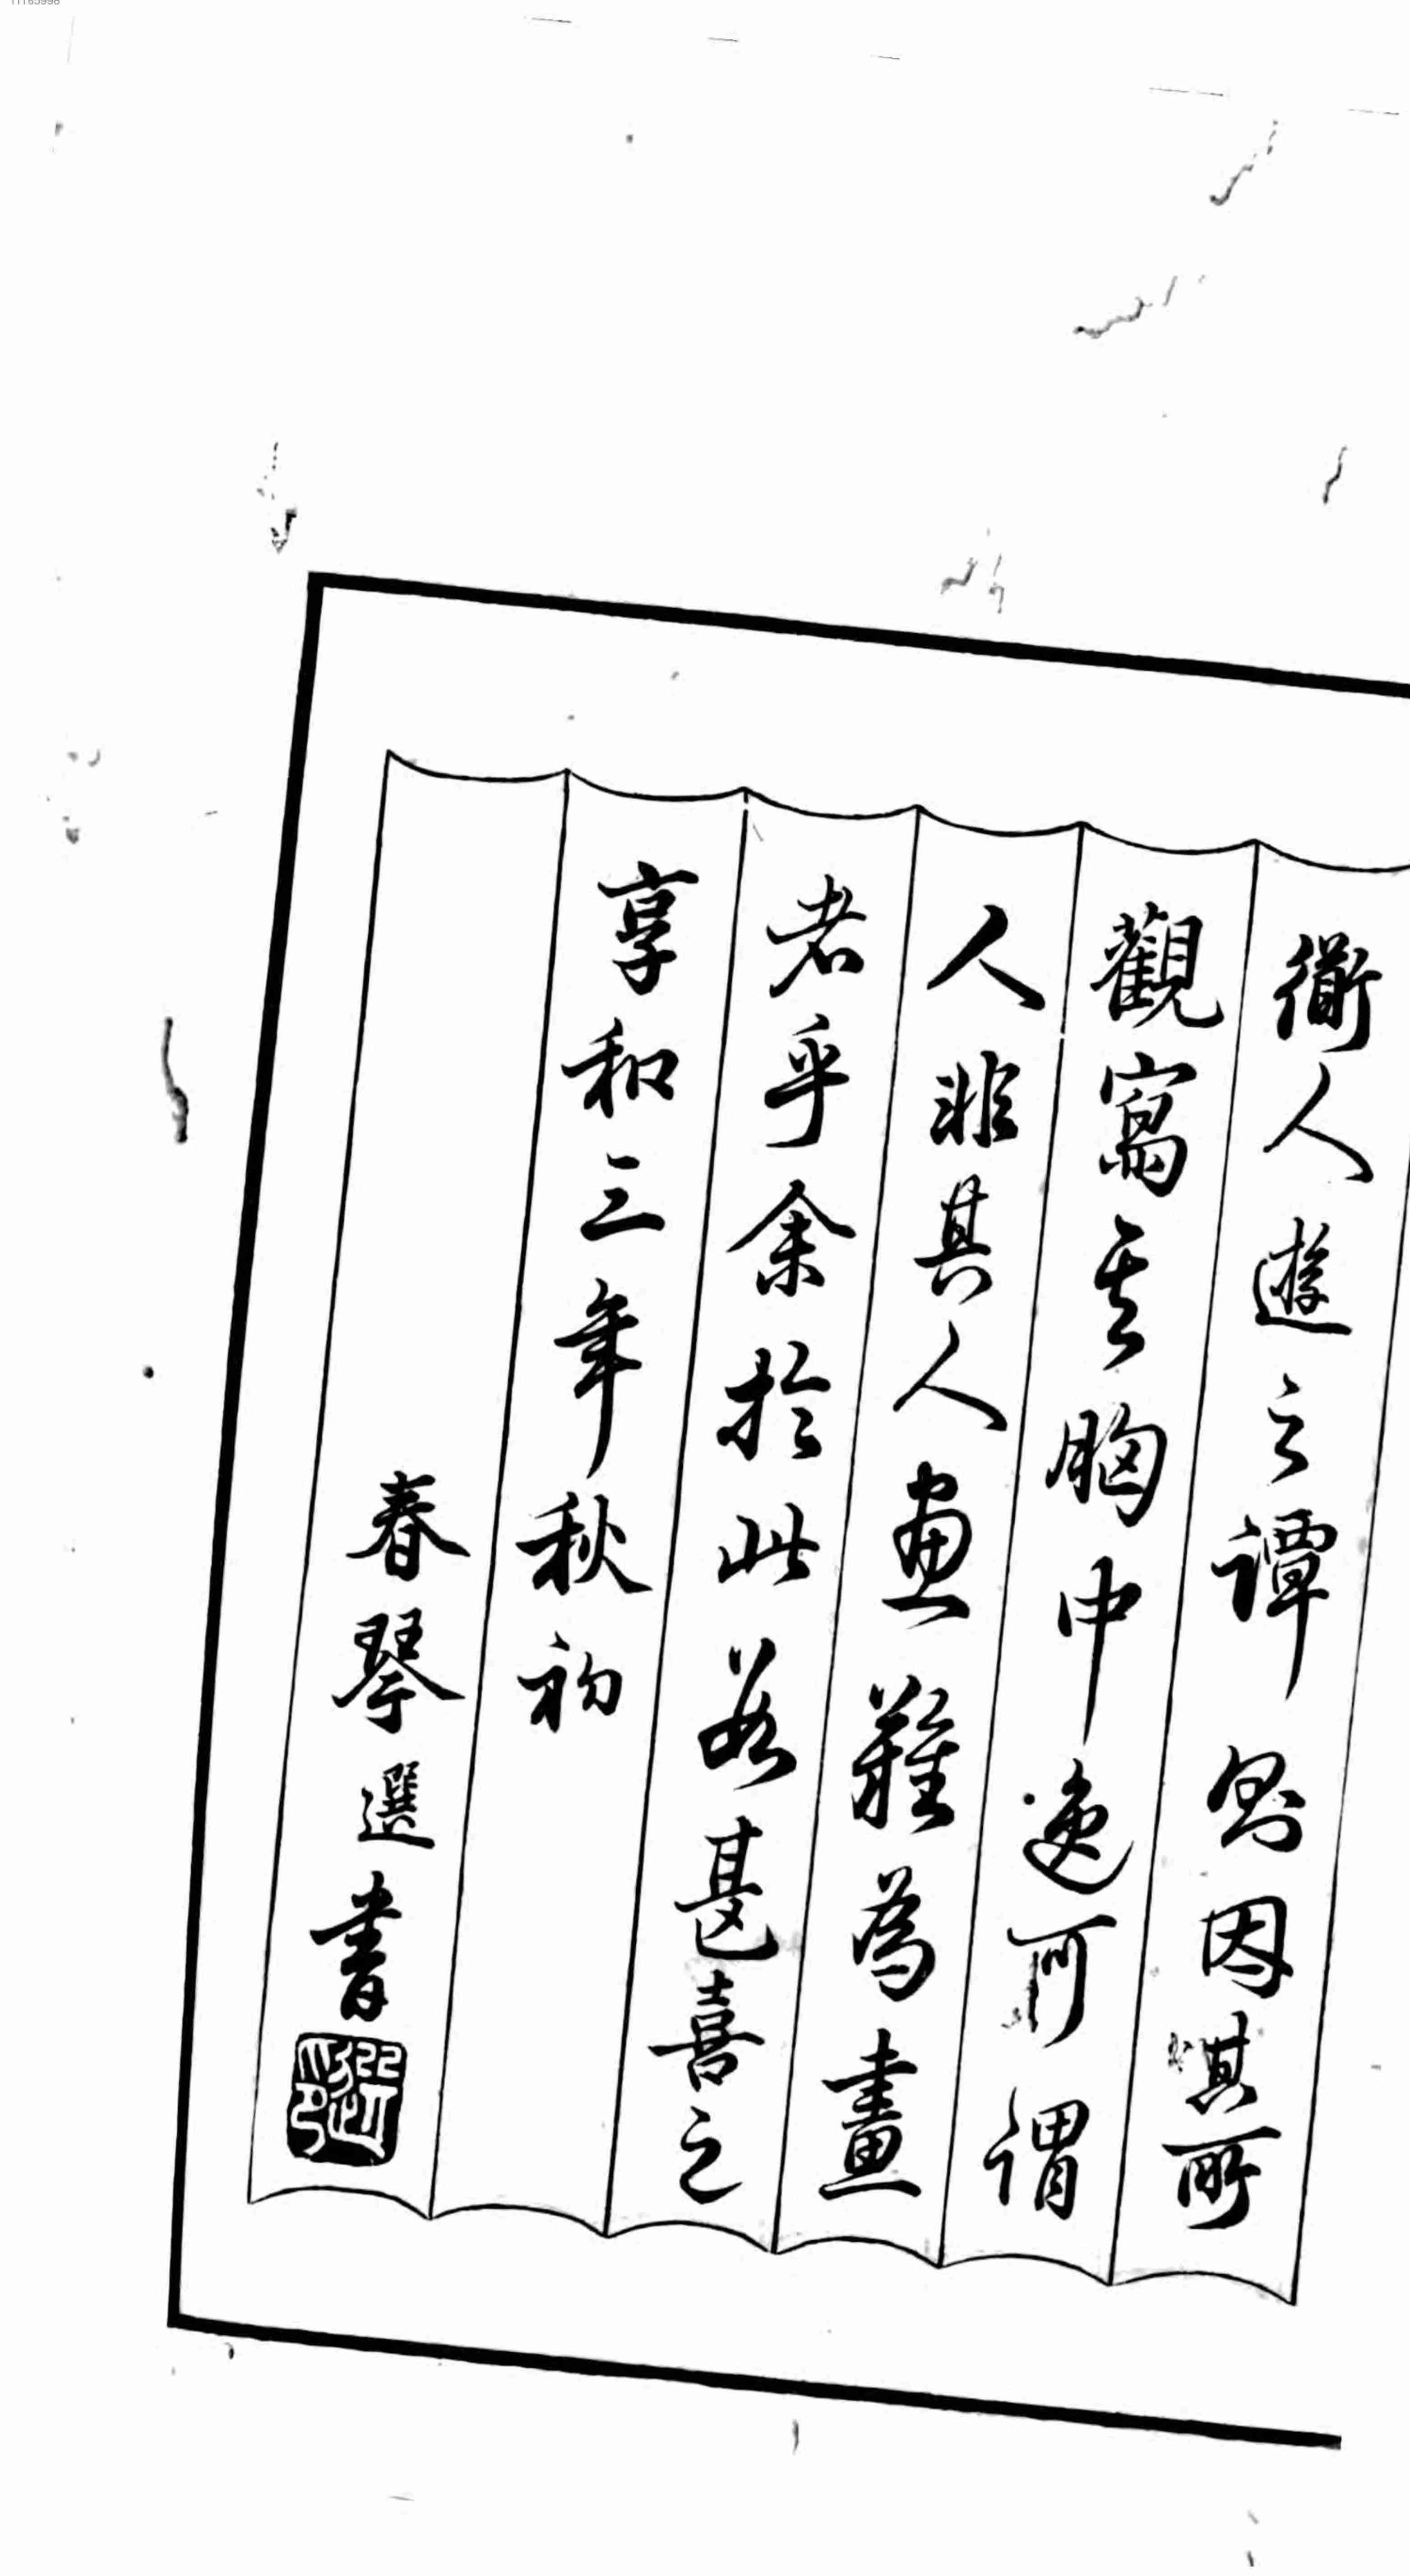 衛人遊之譚則因其所
觀寫其胸中逸所謂
人非其人画難為畫
者乎余於此豈甚喜之
享和三年秋初
春琴選書